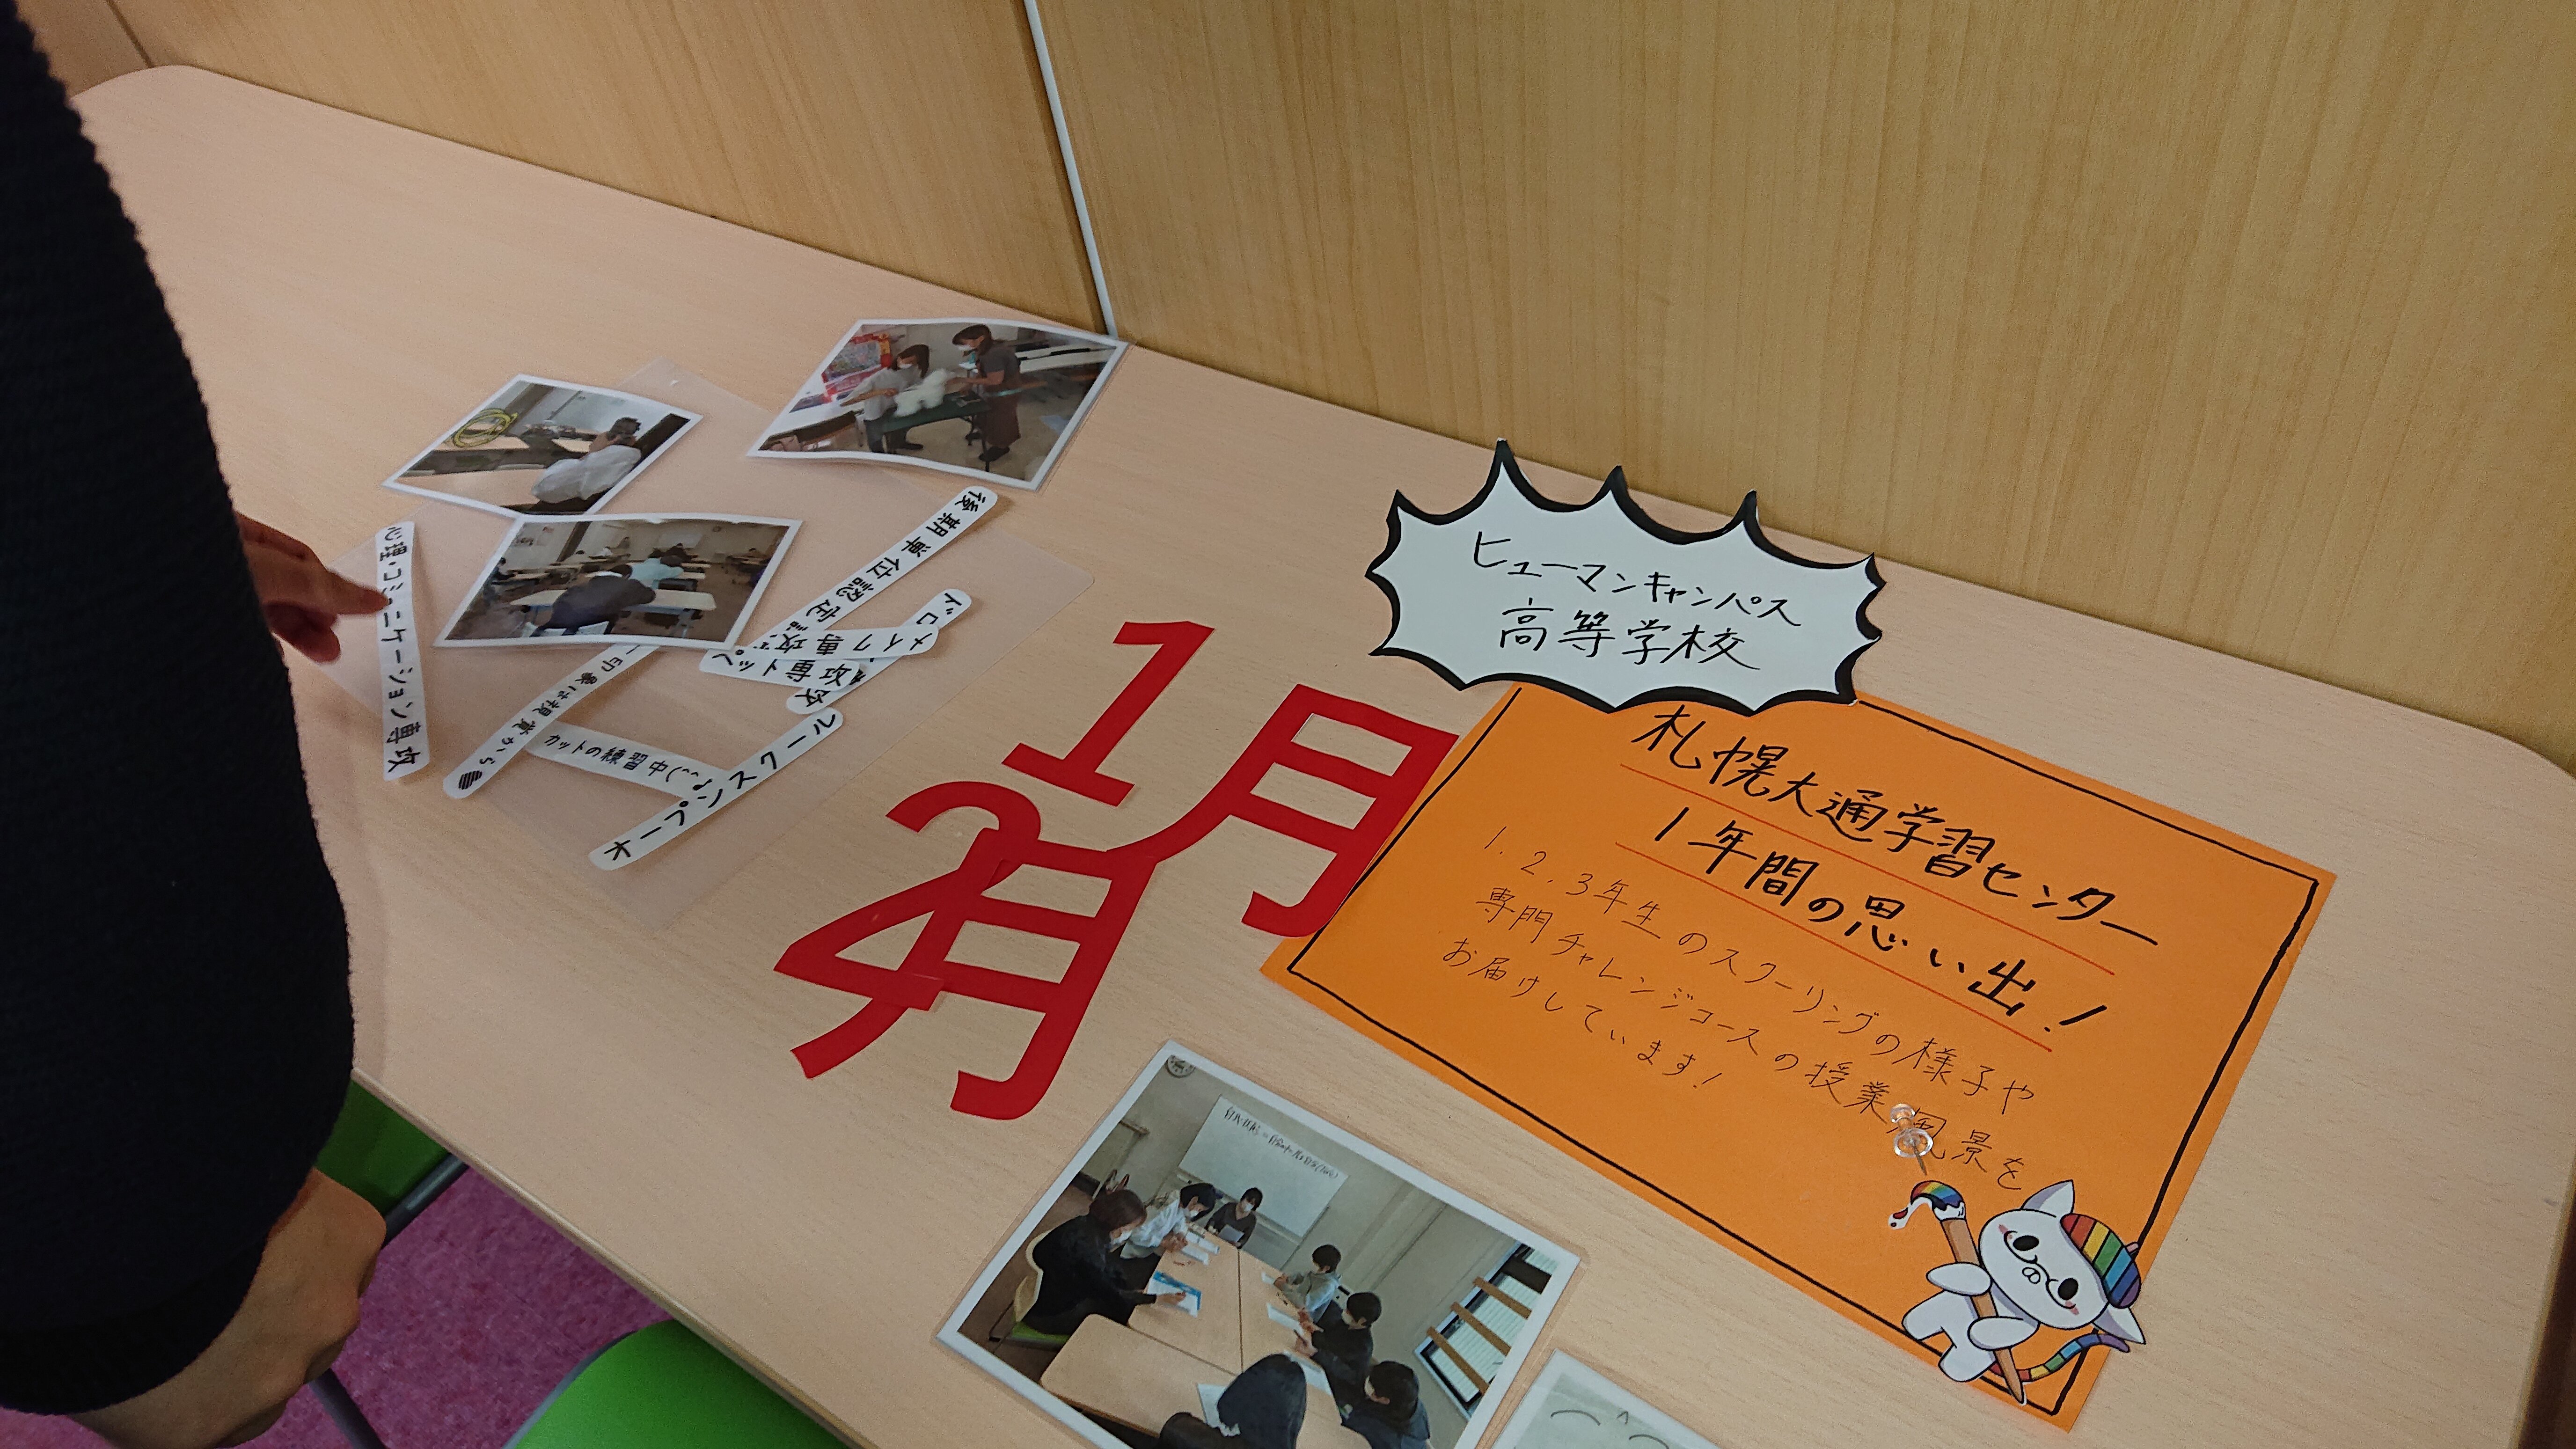 ヒューマンキャンパス
高等学校
札幌大通学習センター
1年間の思い出!
1.2.3年生のスクーリングの様子や
専門チャレンジコースの授業風景を
お届けしています!
1月
2月
後期単位認定
メイク専攻
専攻
心理・コミュニケーション専攻
印象は視覚から
カットの練習中
オープンスクール